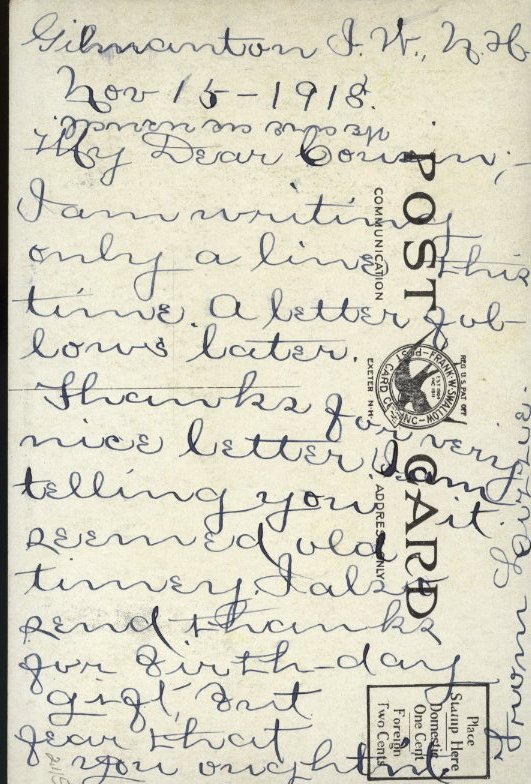 Gilmanton I. W., N. H.
Nov 15 - 1918.
My Dear Cousin; -
I am writing
only a line this
time. A letter fol-
lows later.
Thanks for very
nice letter I am
telling you it
seemed old
timey. I also
send thanks
for birth-day
gift, but
fear that
you ought not
from
POST CARD
COMMUNICATION
ADDRESS ONLY
FRANK W. SWALLOW POST CARD CO. INC.
REG U.S. PAT. OFF
EXETER N.H.
Place
Stamp Here
Domestic
One Cent
Foreign
Two Cents